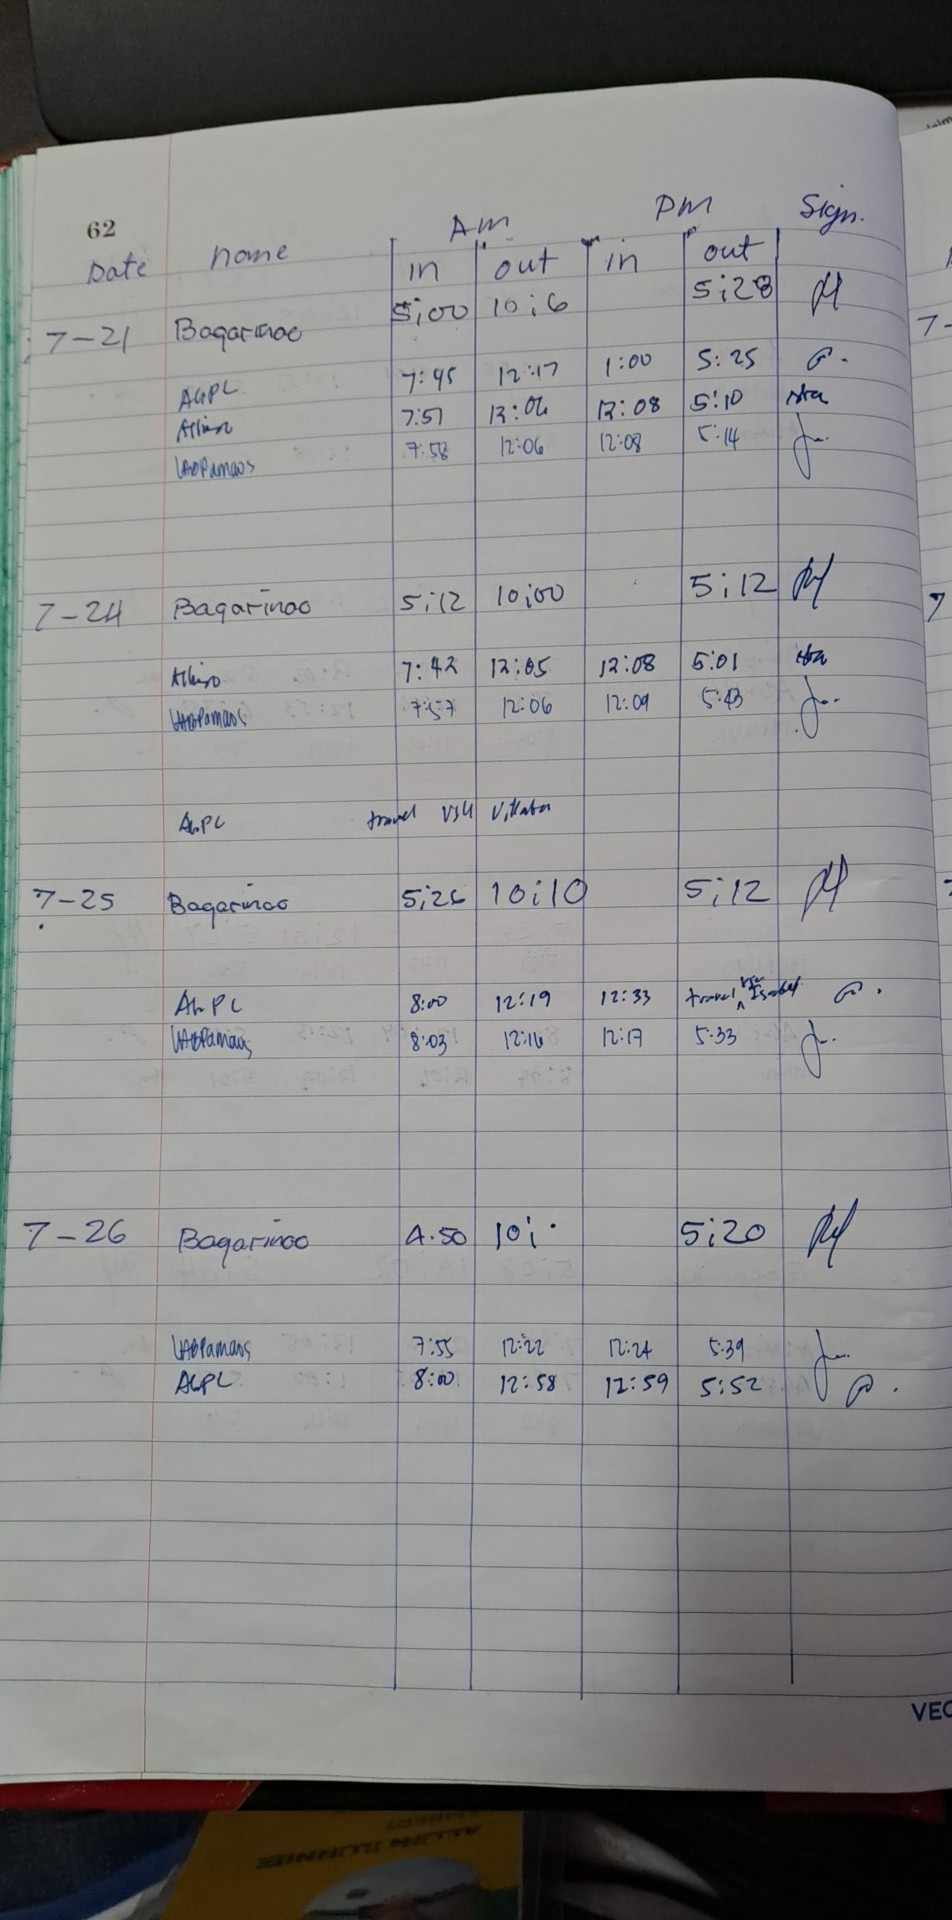 62
Am PM Sign.
Date name in out in out
7-21 Bagarinao 5:00 10:6 5:28
AGPL 7:45 12:17 1:00 5:25
Albino 7:51 12:06 12:08 5:10
7:58 12:06 12:08 5:14
7-24 Bagarinao 5:12 10:00 5:12
Albino 7:42 12:05 12:08 5:01
7:57 12:06 12:09 5:43
AGPL travel VSU Villaba
7-25 Bagarinao 5:26 10:10 5:12
AGPL 8:00 12:19 12:33 travel VSU Isabel
8:03 12:16 12:17 5:33
7-26 Bagarinao 4.50 10: 5:20
7:55 12:22 12:24 5:39
AGPL 8:00 12:58 12:59 5:52
VEC